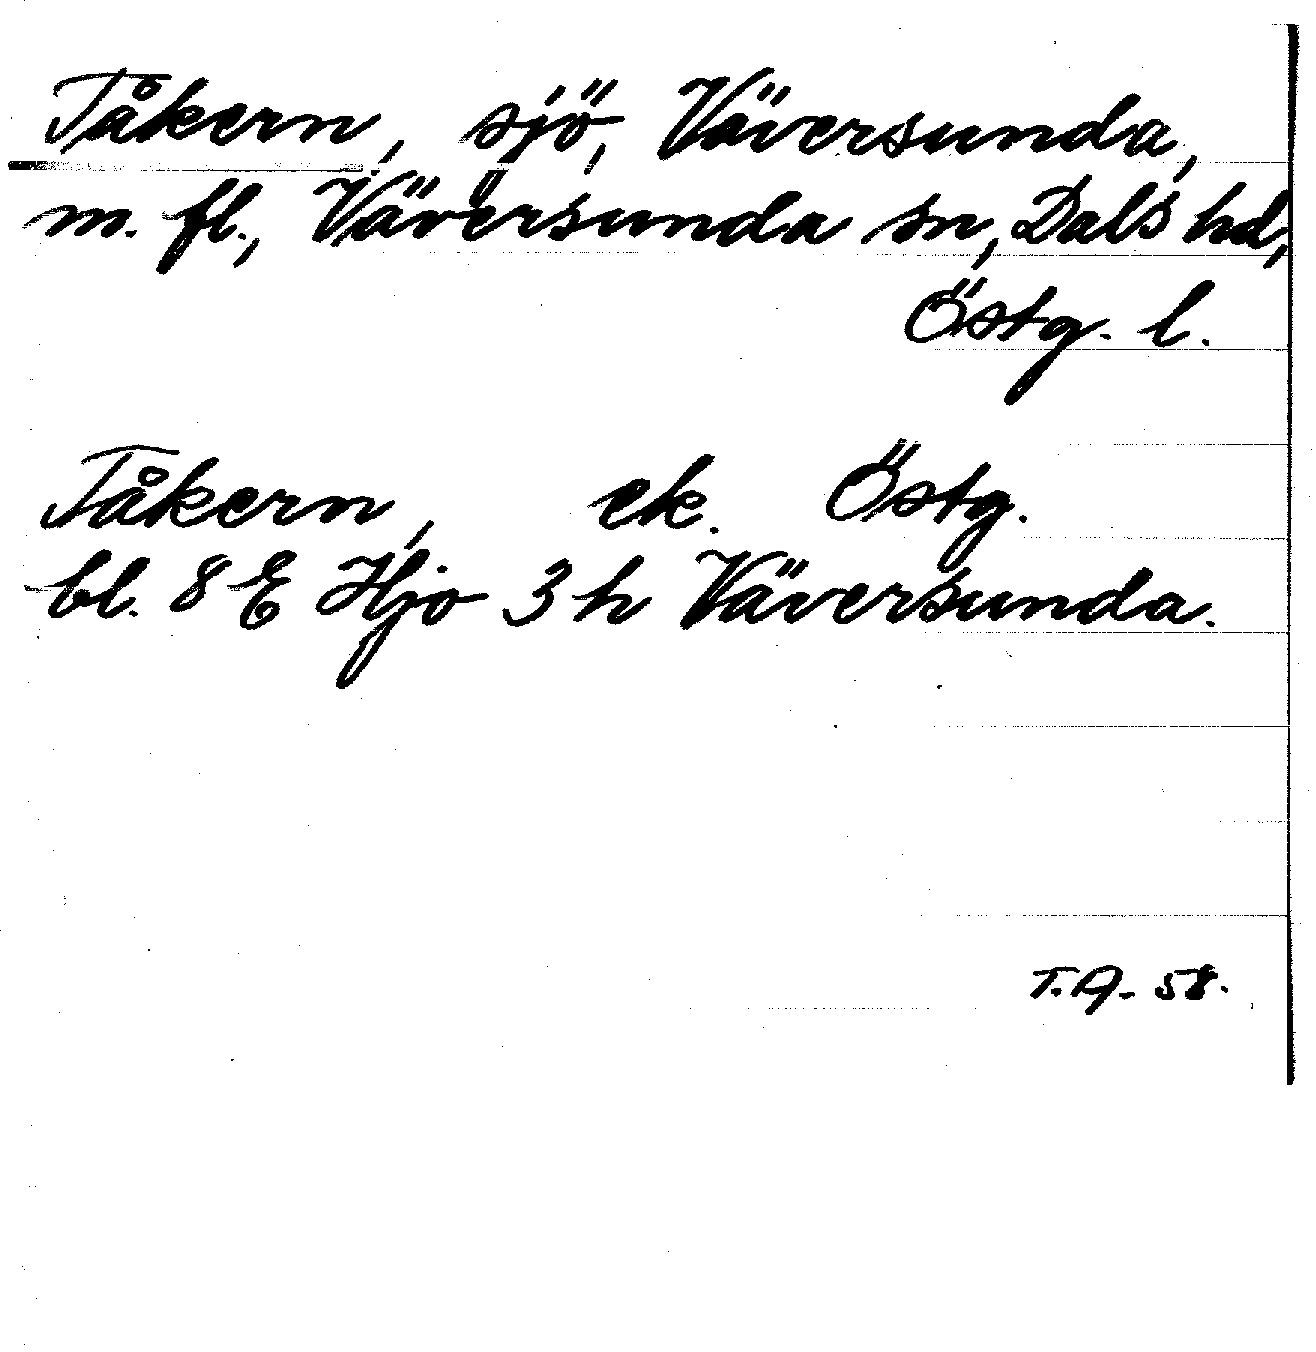 Tåkern, sjö, Väversunda,
m. fl., Väversunda sn, Dals hd,
Östg. l.
Tåkern, ek. Östg.
bl. 8 E Hjo 3 h Väversunda.
T.A. 58.